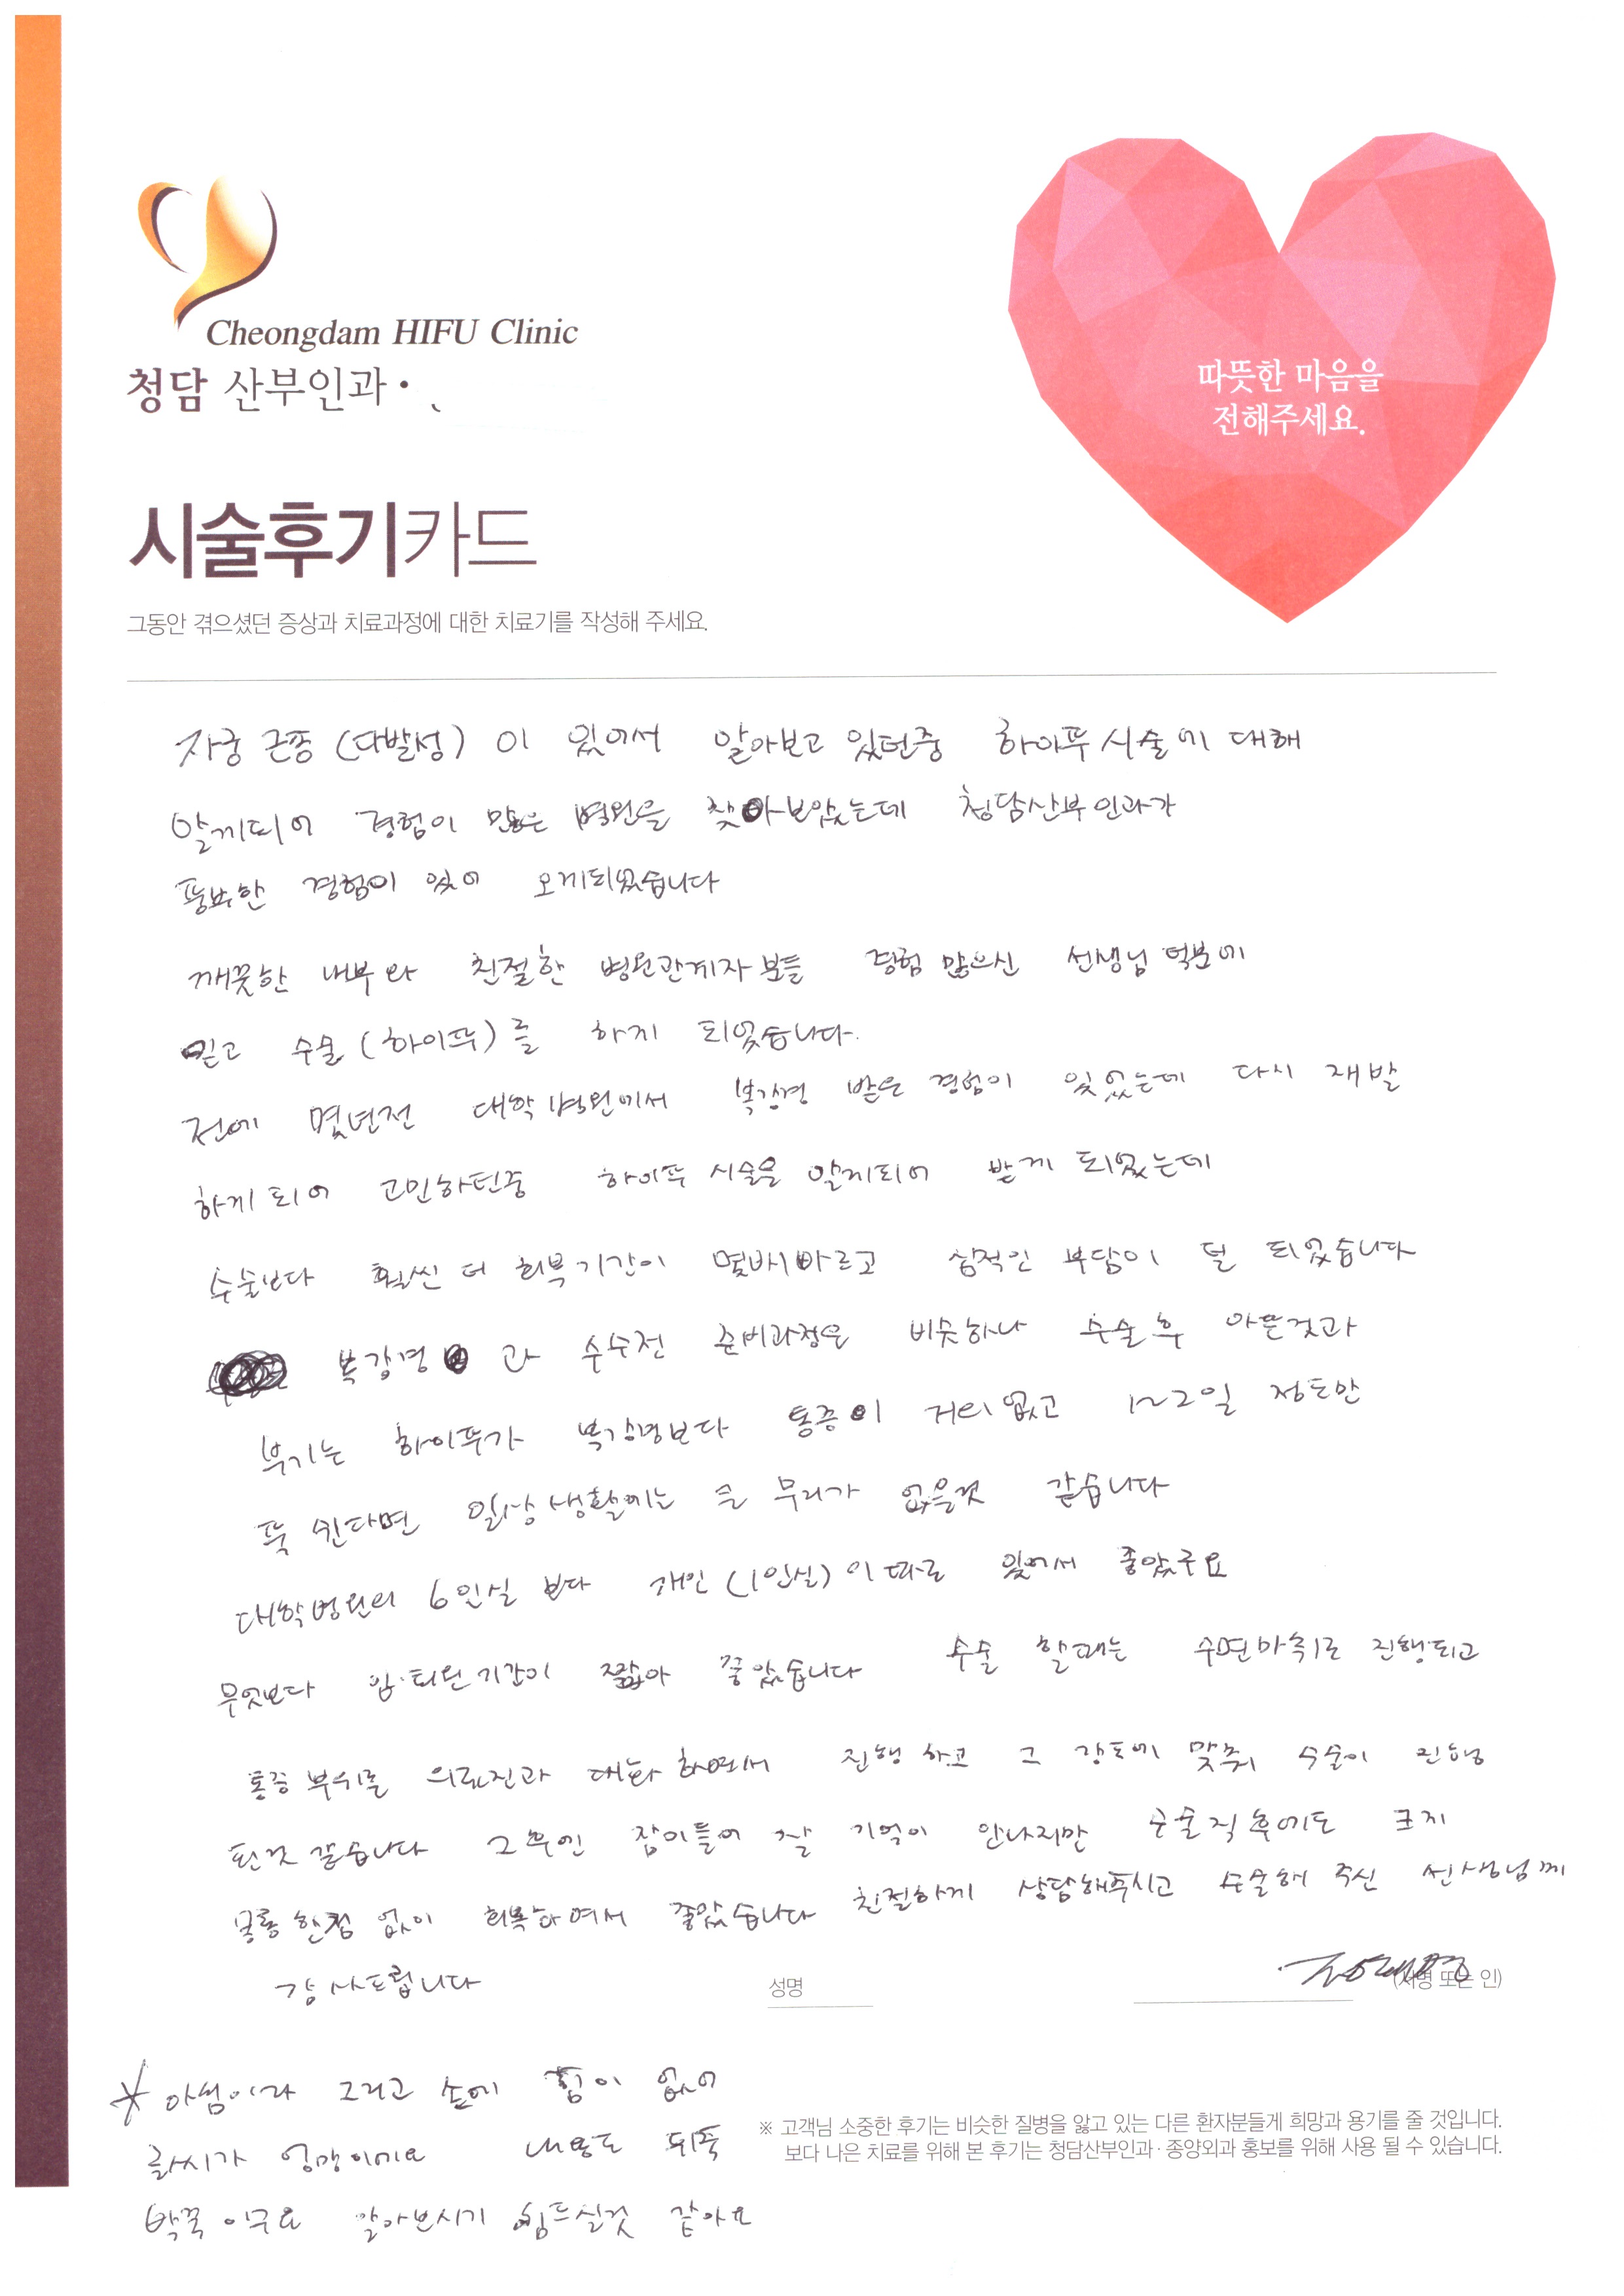 Cheongdam HIFU Clinic
청담 산부인과·
따뜻한 마음을
전해주세요.
시술후기카드
그동안 겪으셨던 증상과 치료과정에 대한 치료기를 작성해 주세요.
자궁 근종 (다발성) 이 있어서 알아보고 있던중 하이푸시술에 대해
알게되어 경험이 많은 병원을 찾아보았는데 청담산부인과가
풍부한 경험이 있어 오게되었습니다
깨끗한 내부와 친절한 병원관계자 분들 경험 많으신 선생님 덕분에
믿고 수술 (하이푸) 를 하게 되었습니다.
전에 몇년전 대학병원에서 복강경 받은 경험이 있었는데 다시 재발
하게 되어 고민하던중 하이푸 시술을 알게되어 받게 되었는데
수술보다 훨씬 더 회복기간이 몇배빠르고 심적인 부담이 덜 되었습니다
복강경 과 수수전 준비과정은 비슷하나 수술후 아픈것과
붓기는 하이푸가 복강경보다 통증이 거의 없고 1~2일 정도만
푹 쉰다면 일상생활에는 큰 무리가 없을것 같습니다
대학병원의 6인실 보다 개인 (1인실) 이 따로 있어서 좋았구요
무엇보다 입·퇴원기간이 짧아 좋았습니다 수술 할때는 수면마취로 진행되고
통증 부위를 의료진과 대화하면서 진행하고 그 강도에 맞춰 수술이 진행
된것 같습니다 그후엔 잠이들어 잘 기억이 안나지만 수술직후에도 크게
불통한점 없이 회복하여서 좋았습니다 친절하게 상담해주시고 수술해 주신 선생님께
감사드립니다
성명
(서명 또는 인)
* 아침이라 그리고 손에 힘이 없어
글씨가 엉망이에요 내용도 뒤죽
박죽이구요 알아보시기 힘드실것 같아요
※ 고객님 소중한 후기는 비슷한 질병을 앓고 있는 다른 환자분들게 희망과 용기를 줄 것입니다.
보다 나은 치료를 위해 본 후기는 청담산부인과·종양외과 홍보를 위해 사용 될 수 있습니다.